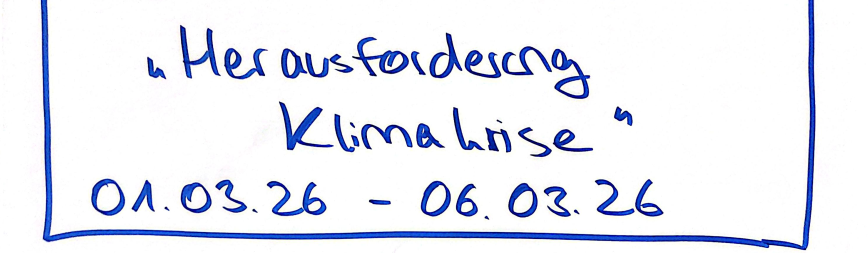 „Herausforderung
Klimakrise"
01.03.26 - 06.03.26